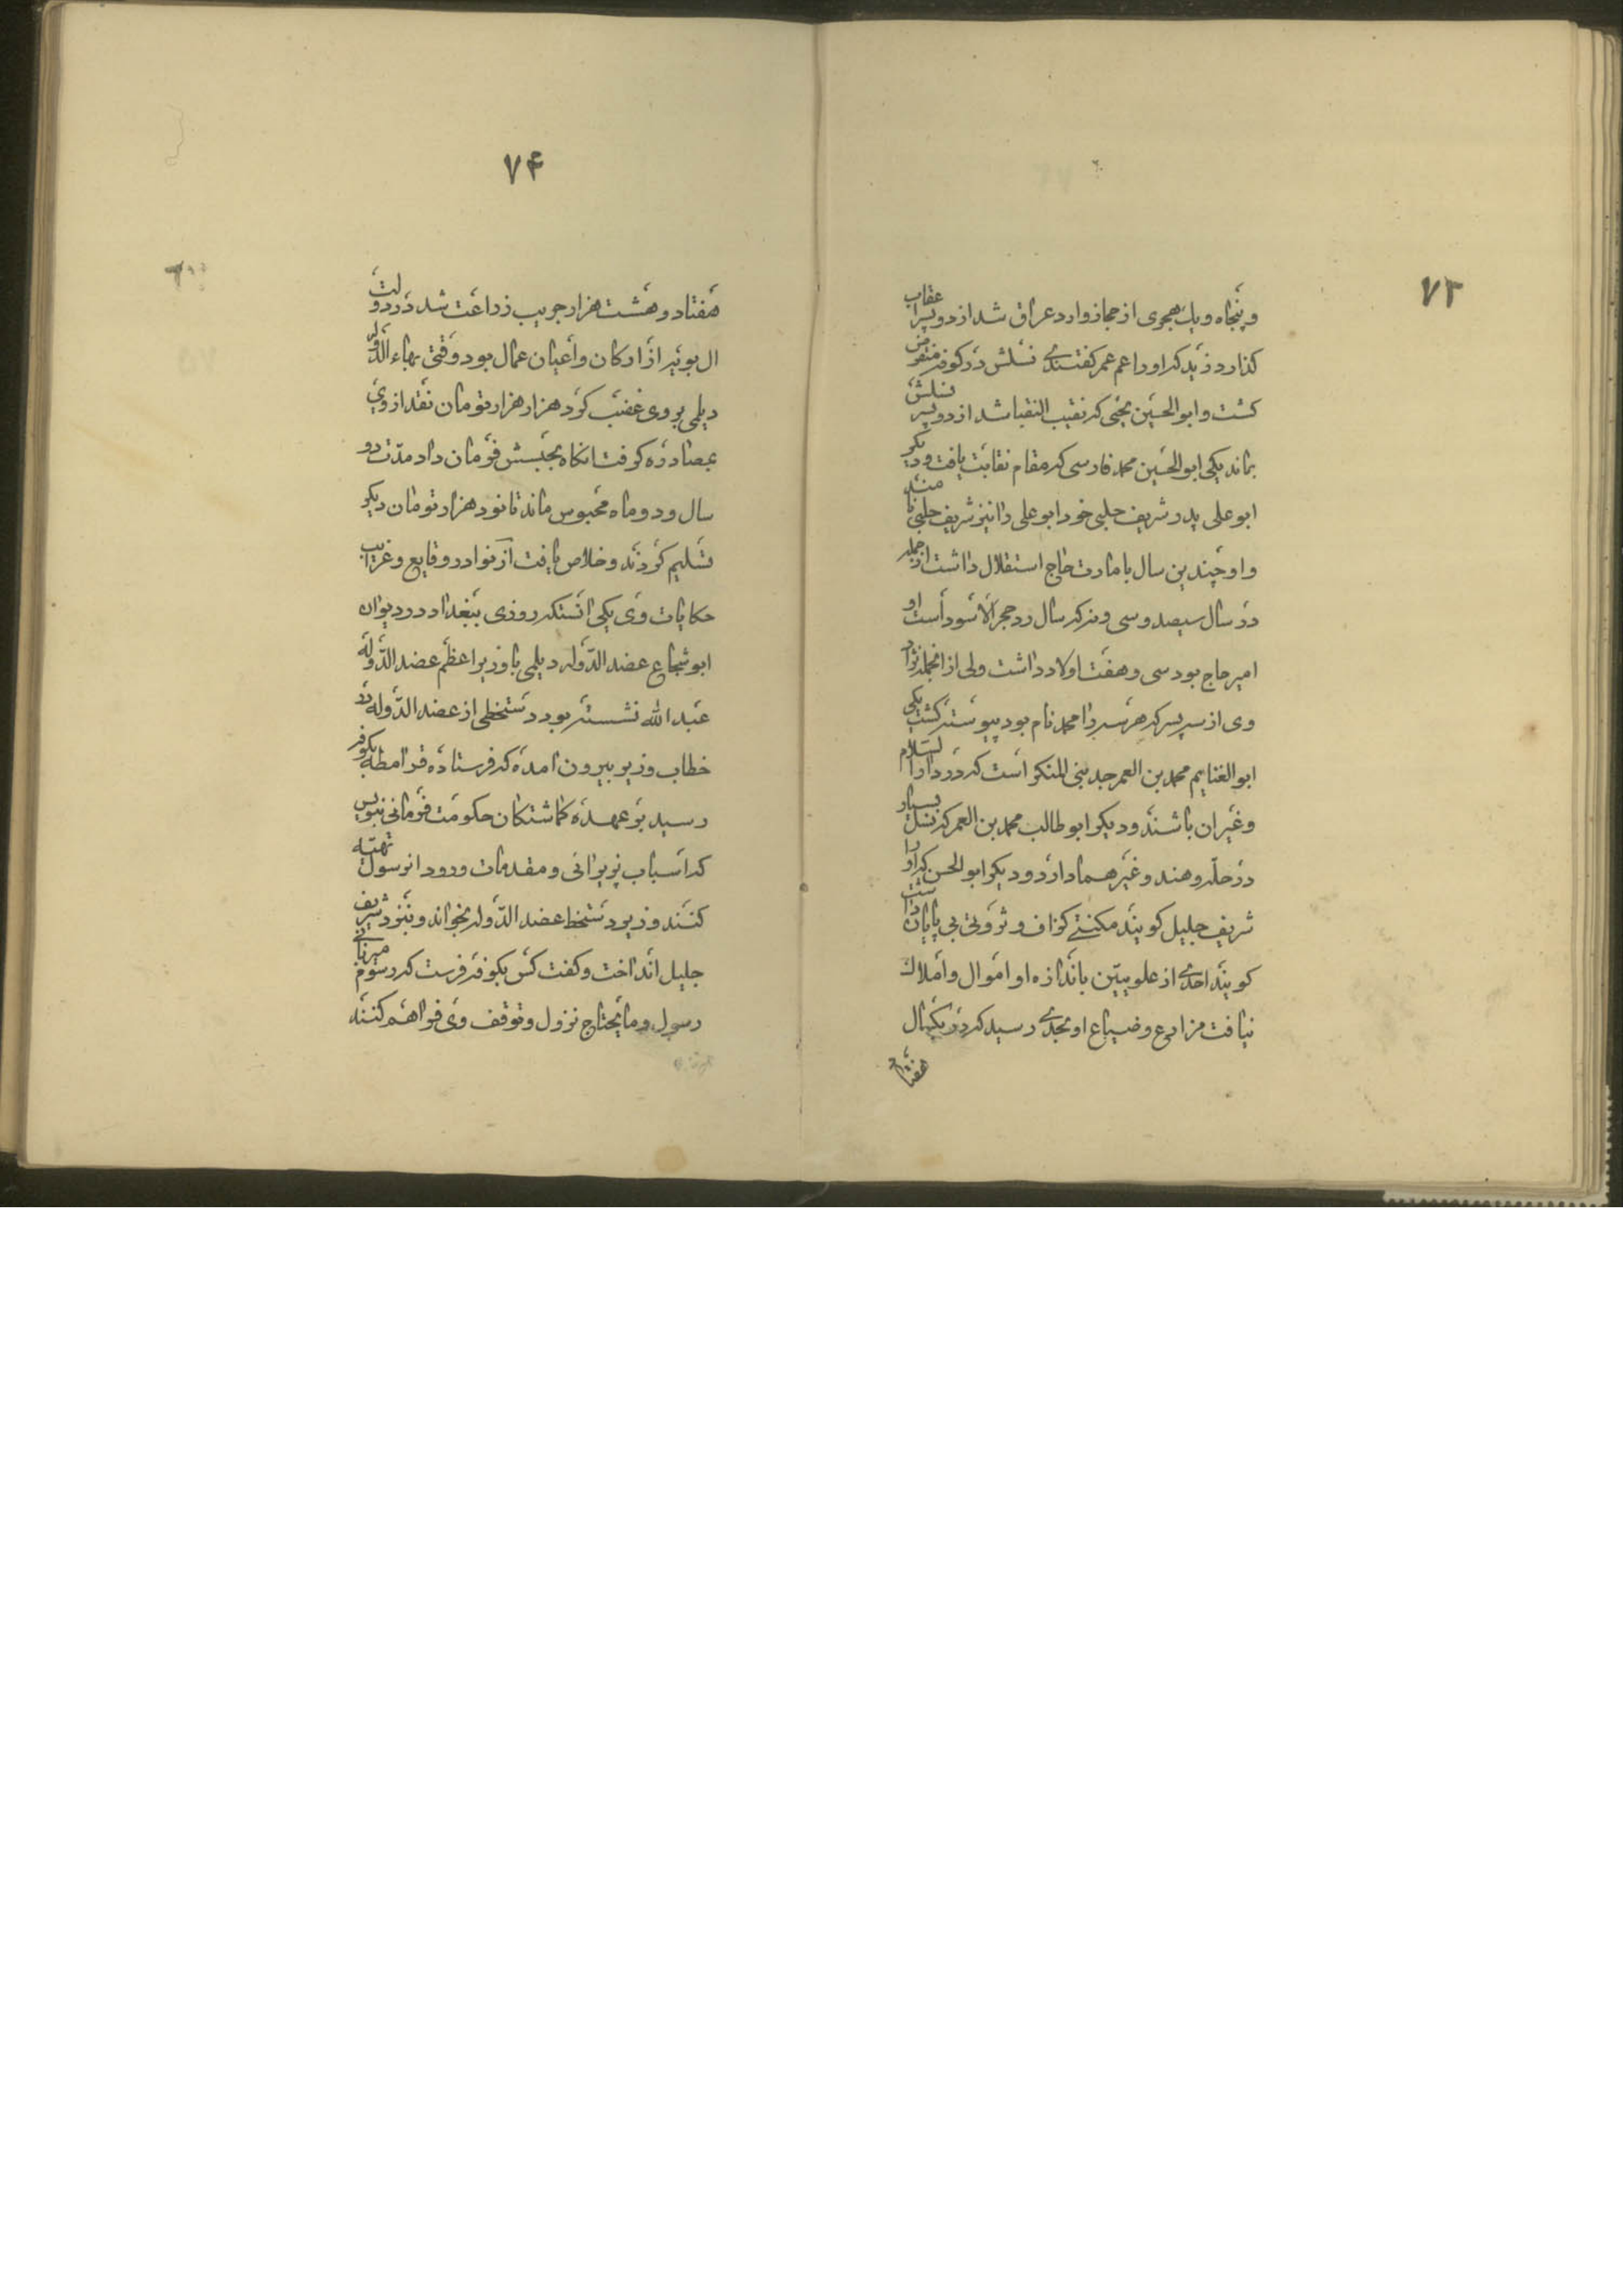 ۷۳
و پنجاه و یک هجری از حجاز وارد عراق شد از دو پسر اعقاب
گذارد زید که او را عم عمر گفتندی نسلش در کوفه منقرض
گشت و ابوالحسین یحیی که نقیب النقبا شد از دو پسر نسلش
بماند یکی ابوالحسین محمد فارسی که مقام نقابت یافت و دیگر
ابوعلی پدر شریف جلیل خود ابوعلی را نیز شریف جلیل نامند
و او چندین سال بامارت حاج استقلال داشت از جمله
در سال سیصد و سی و نه که سال رد حجر الاسود است او
امیر حاج بود سی و هفت اولاد داشت ولی از انجمله نژاد
وی از سه پسر که هر سه را محمد نام بود پیوسته گشت یکی
ابوالغنایم محمد بن العمر جد بنی المنکر است که در دارالسلام
و غیران باشند و دیگر ابو طالب محمد بن العمر که نسل بسیار
در حله و هند و غیرهما دارد و دیگر ابوالحسن که او را
شریف جلیل گویند مکنتی گزاف و ثروتی بی پایان داشت
گویند احدی از علویین باندازه او اموال و املاک
نیافت مزارع و ضیاع او بحدی رسید که در یکسال
هفتاد
۷۴
هفتاد و هشت هزار جریب زراعت شد در دولت
ال بویه از ارکان و اعیان عمال بود وقتی بهاء الدوله
دیلمی بر وی غضب کرد هزار هزار تومان نقد از وی
بمصادره گرفت انگاه بحبسش فرمان داد مدت دو
سال و دو ماه محبوس ماند تا نود هزار تومان دیگر
تسلیم کردند و خلاص یافت از نوادر وقایع و غرایب
حکایات وی یکی انستکه روزی ببغداد در دیوان
ابو شجاع عضد الدوله دیلمی با وزیر اعظم عضد الدوله
عبد الله نشسته بود دستخطی از عضد الدوله در
خطاب وزیر بیرون امده که فرستاده قرامطه بکوفه
رسید بر عهده گماشتگان حکومت فرمانی بنویس
که اسباب پذیرائی و مقدمات ورود انرسول تهیه
کنند وزیر دستخط عضد الدوله بخواند و بنزد شریف
جلیل انداخت و گفت کس بکوفه فرست که رسوم میزبانی
رسول و ما یحتاج نزول و توقف وی فراهم کنند